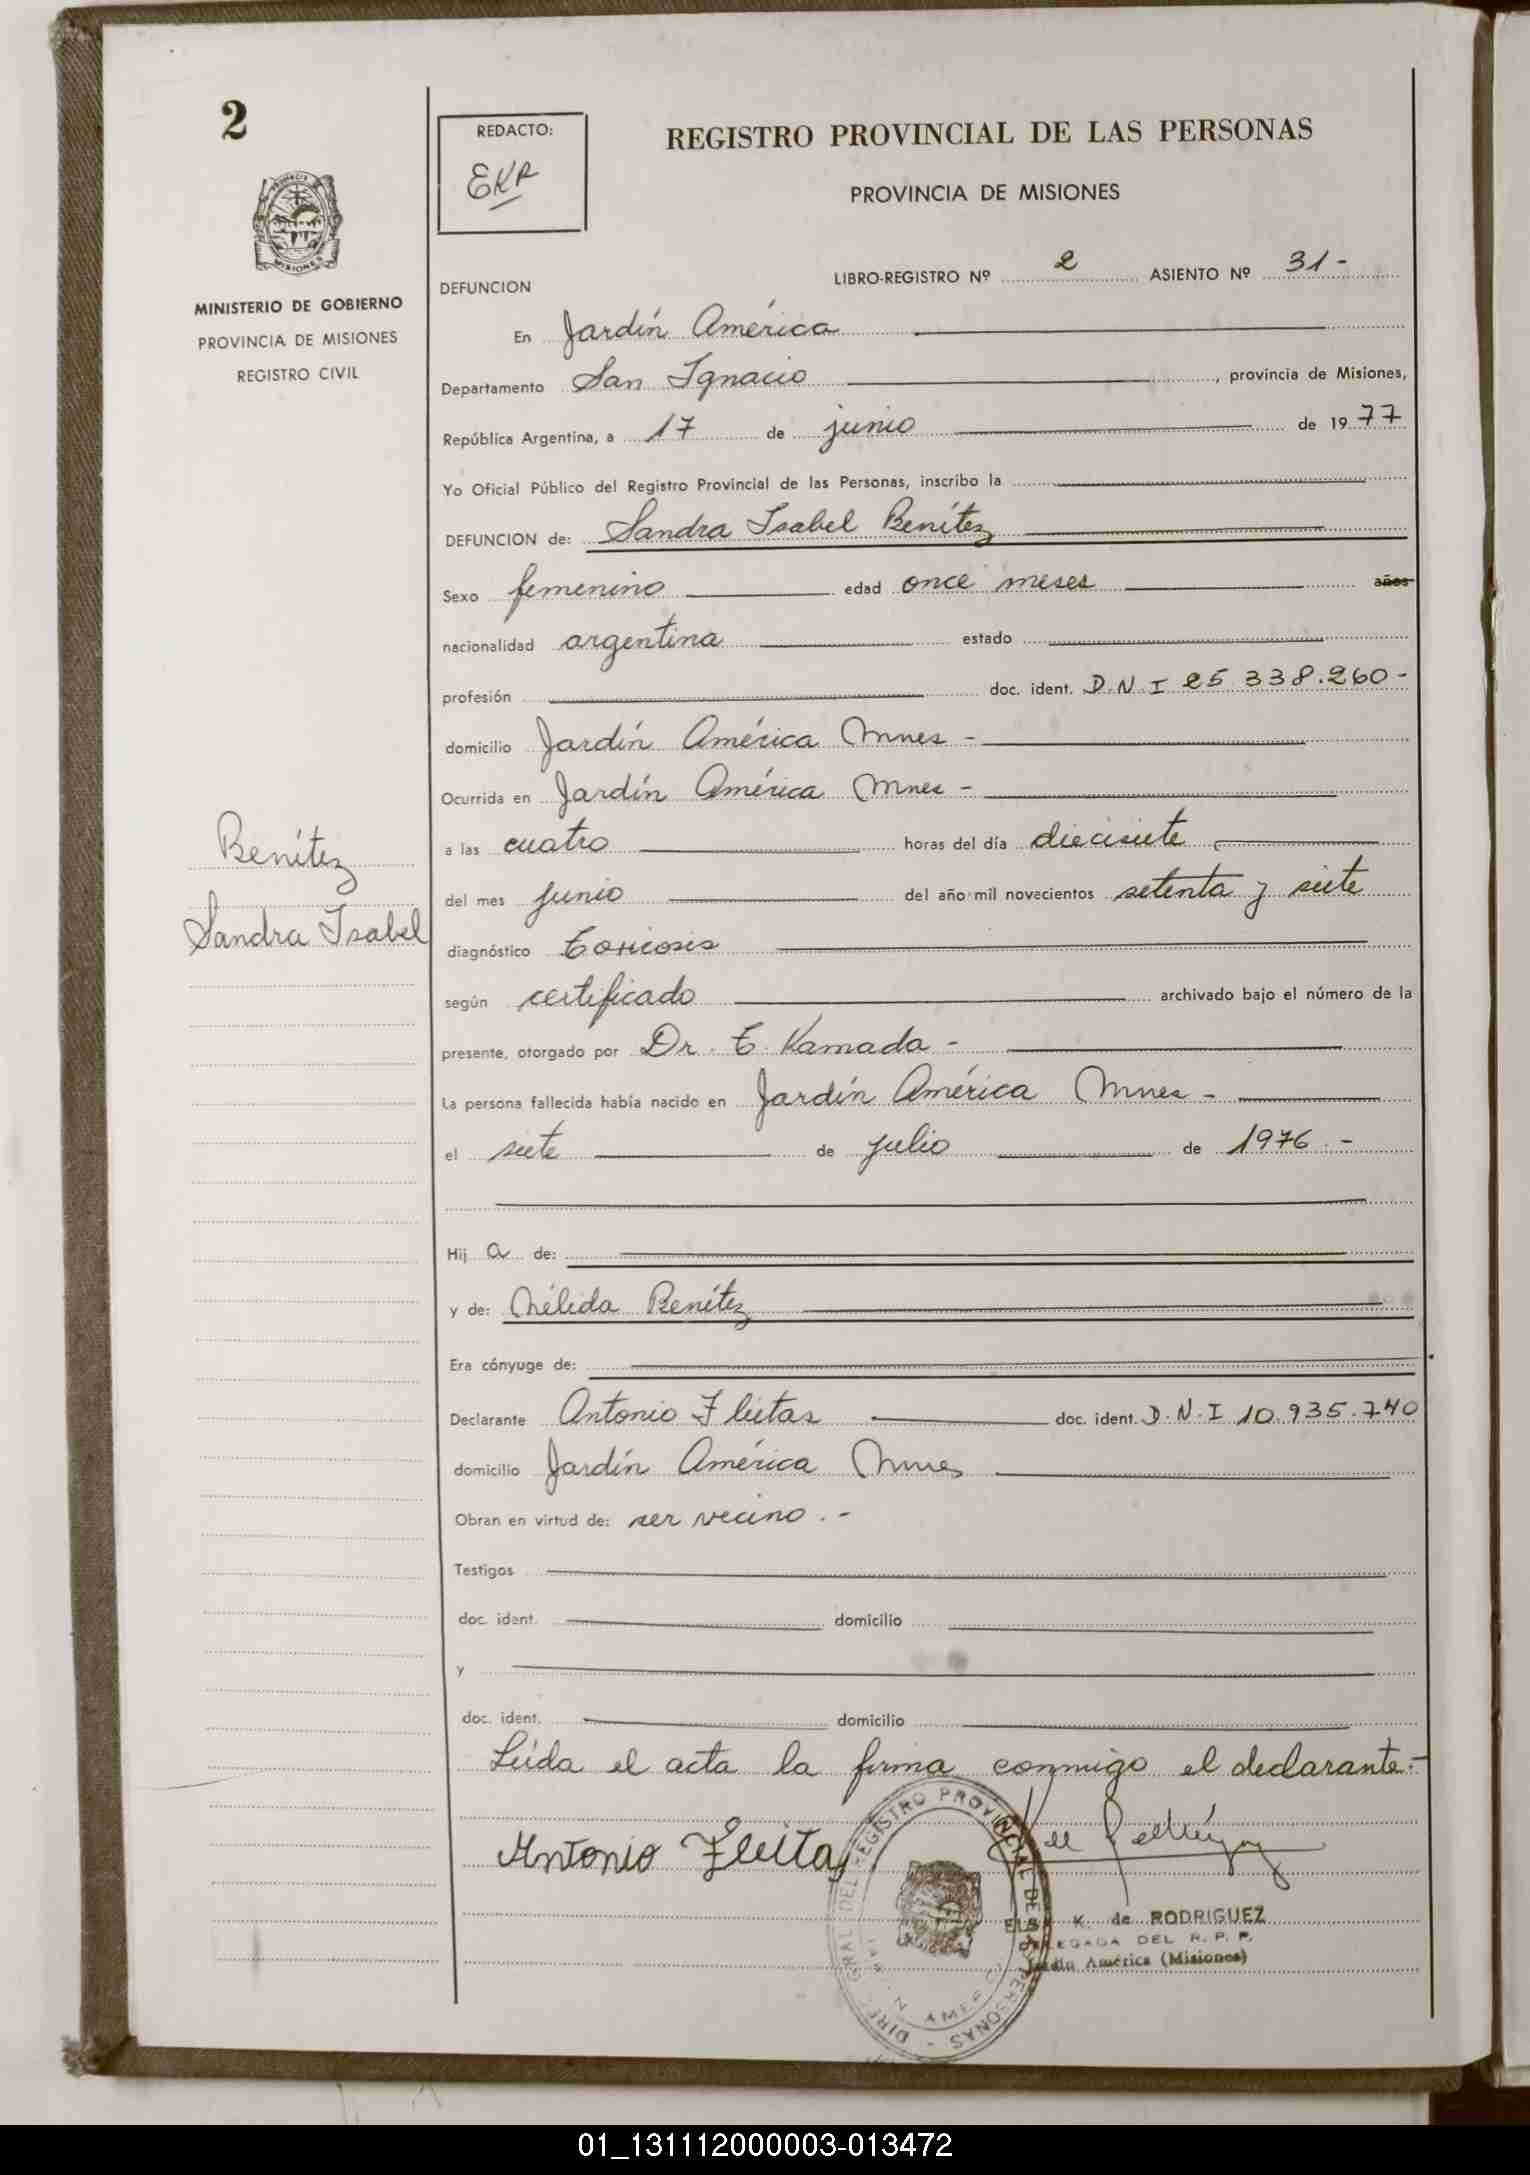 2
REDACTO:
EKR
REGISTRO PROVINCIAL DE LAS PERSONAS
PROVINCIA DE MISIONES
MISIONES
MINISTERIO DE GOBIERNO
PROVINCIA DE MISIONES
REGISTRO CIVIL
DEFUNCION
LIBRO-REGISTRO Nº 2 ASIENTO Nº 31-
En Jardín América
Departamento San Ignacio, provincia de Misiones,
República Argentina, a 17 de junio de 1977
Yo Oficial Público del Registro Provincial de las Personas, inscribo la
DEFUNCION de: Sandra Isabel Benítez
Sexo femenino edad once meses años
nacionalidad argentina estado
profesión doc. ident. D.N.I 25 338.260-
domicilio Jardín América Mnes -
Ocurrida en Jardín América Mnes -
a las cuatro horas del día diecisiete
del mes junio del año mil novecientos setenta y siete
diagnóstico Toxicosis
según certificado archivado bajo el número de la
presente, otorgado por Dr. T. Kamada -
La persona fallecida había nacido en Jardín América Mnes -
el siete de julio de 1976.-
Hij a de:
y de: Nélida Benítez
Era cónyuge de:
Declarante Antonio Fleitas doc. ident. D.N.I 10.935.740
domicilio Jardín América Mnes
Obran en virtud de: ser vecino.-
Testigos
doc. ident. domicilio
y
doc. ident. domicilio
Leída el acta la firma conmigo el declarante.-
Benítez
Sandra Isabel
Antonio Fleitas
K. de RODRIGUEZ
DELEGADA DEL R. P. P.
Jardín América (Misiones)
01_131112000003-013472